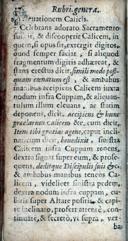 Rubri. genera.
euationem Calicis.
Celebrans adorato Sacramento
surgit, & discooperit Calicem, in
quem, si opus sit, extergit digitos,
quod semper faciat, si aliquod
fragmentum digitis adhæreat, &
stans erectus dicit: Simili modo post-
quam cœnatum est, & ambabus
manibus accipiens Calicem iuxta
nodum infra Cuppam, & aliquan-
tulum illum eleuans, ac statim
deponens, dicit, accipiens & hunc
præclarum calicem &c. cum dicit,
Item tibi gratias agens, caput incli-
nat, cum dicit, benedixit, sinistra
Calicem infra Cuppam tenens,
dextra signat super eum, & prose-
quens, deditque Discipulis suis &c.
& ambabus manibus tenens Ca-
licem, videlicet sinistra pedem,
dextra nodum infra cuppam, cu-
bitis super Altare positis, & capi-
te inclinato, profert attentè, con-
tinuatè, & secretò, vt supra, ver-
ba